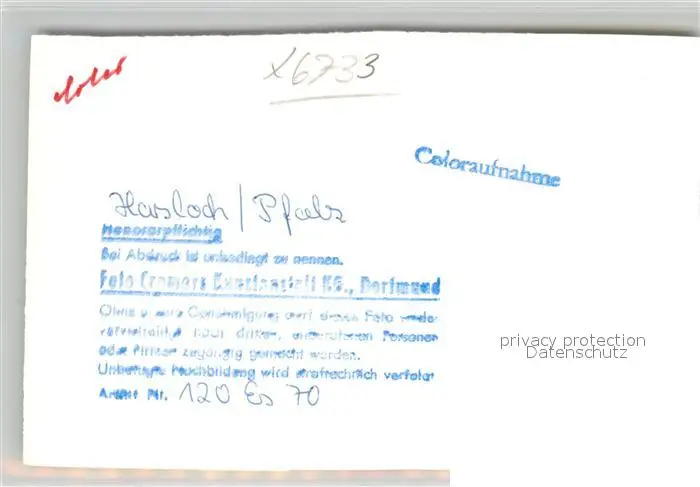 X6733
Coloraufnahme
Hasloch / Pfalz
Honorarpflichtig
Bei Abdruck ist unbedingt zu nennen.
Foto Cramers Kunstanstalt KG., Dortmund
Ohne unsere Genehmigung darf dieses Foto weder
vervielfältigt noch dritten, unberufenen Personen
oder Firmen zugängig gemacht werden.
Unbefugte Nachbildung wird strafrechtlich verfolgt
privacy protection
Datenschutz
Archiv Nr. 120 Es 70